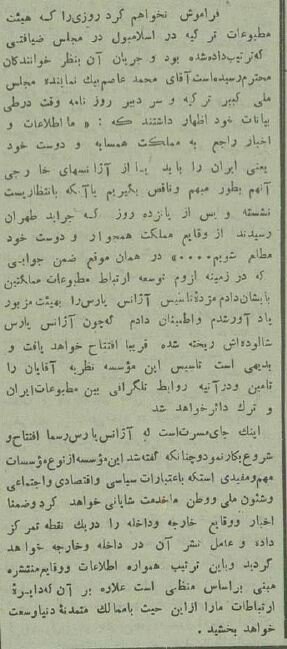 فراموش نخواهم کرد روزی را که هیئت
مطبوعات ترکیه در اسلامبول در مجلس ضیافتی
که ترتیب داده شده بود و جریان آن بنظر خوانندگان
محترم رسیده است آقای محمد عاصم بیك نماینده مجلس
ملی کبیر ترکیه و سر دبیر روز نامه وقت درطی
بیانات خود اظهار داشتند که : « ما اطلاعات و
اخبار راجع به مملکت همسایه و دوست خود
یعنی ایران را باید از آژانسهای خارجی
آنهم بطور مبهم وناقص بگیریم یا آنکه بانتظار پست
نشسته و پس از پانزده روز که جراید طهران
رسیدند از وقایع مملکت همجوار و دوست خود
مطلع شویم.....» در همان موقع ضمن جوابی
که در زمینه لزوم توسعه ارتباط مطبوعات مملکتین
بایشان دادم مژدهٔ تاسیس آژانس پارس را بهیئت مزبور
یاد آور شدم واطمینان دادم که چون آژانس پارس
شالوده اش ریخته شده قریبا افتتاح خواهد یافت و
بدیهی است تاسیس این مؤسسه نظریه آقایان را
تامین ودر آتیه روابط تلگرافی بین مطبوعات ایران
و ترك دائر خواهد شد
اینك جای مسرت است که آژانس پارس رسما افتتاح و
شروع بکار نمود و چنانکه گفته شد این مؤسسه از نوع مؤسسات
مهم ومفیدی استکه باعتبارات سیاسی واقتصادی واجتماعی
وشئون ملی ووطن ما خدمت شایانی خواهد کرد وضمنا
اخبار ووقایع خارجه وداخله را دریك نقطه تمرکز
داده و عامل نشر آن در داخله وخارجه خواهد
گردید وباین ترتیب همواره اطلاعات ووقایع منتشره
مبنی براساس منظمی است علاوه بر آن که دایرهٔ
ارتباطات مارا ازاین حیث باممالك متمدنهٔ دنیا وسعت
خواهد بخشید .